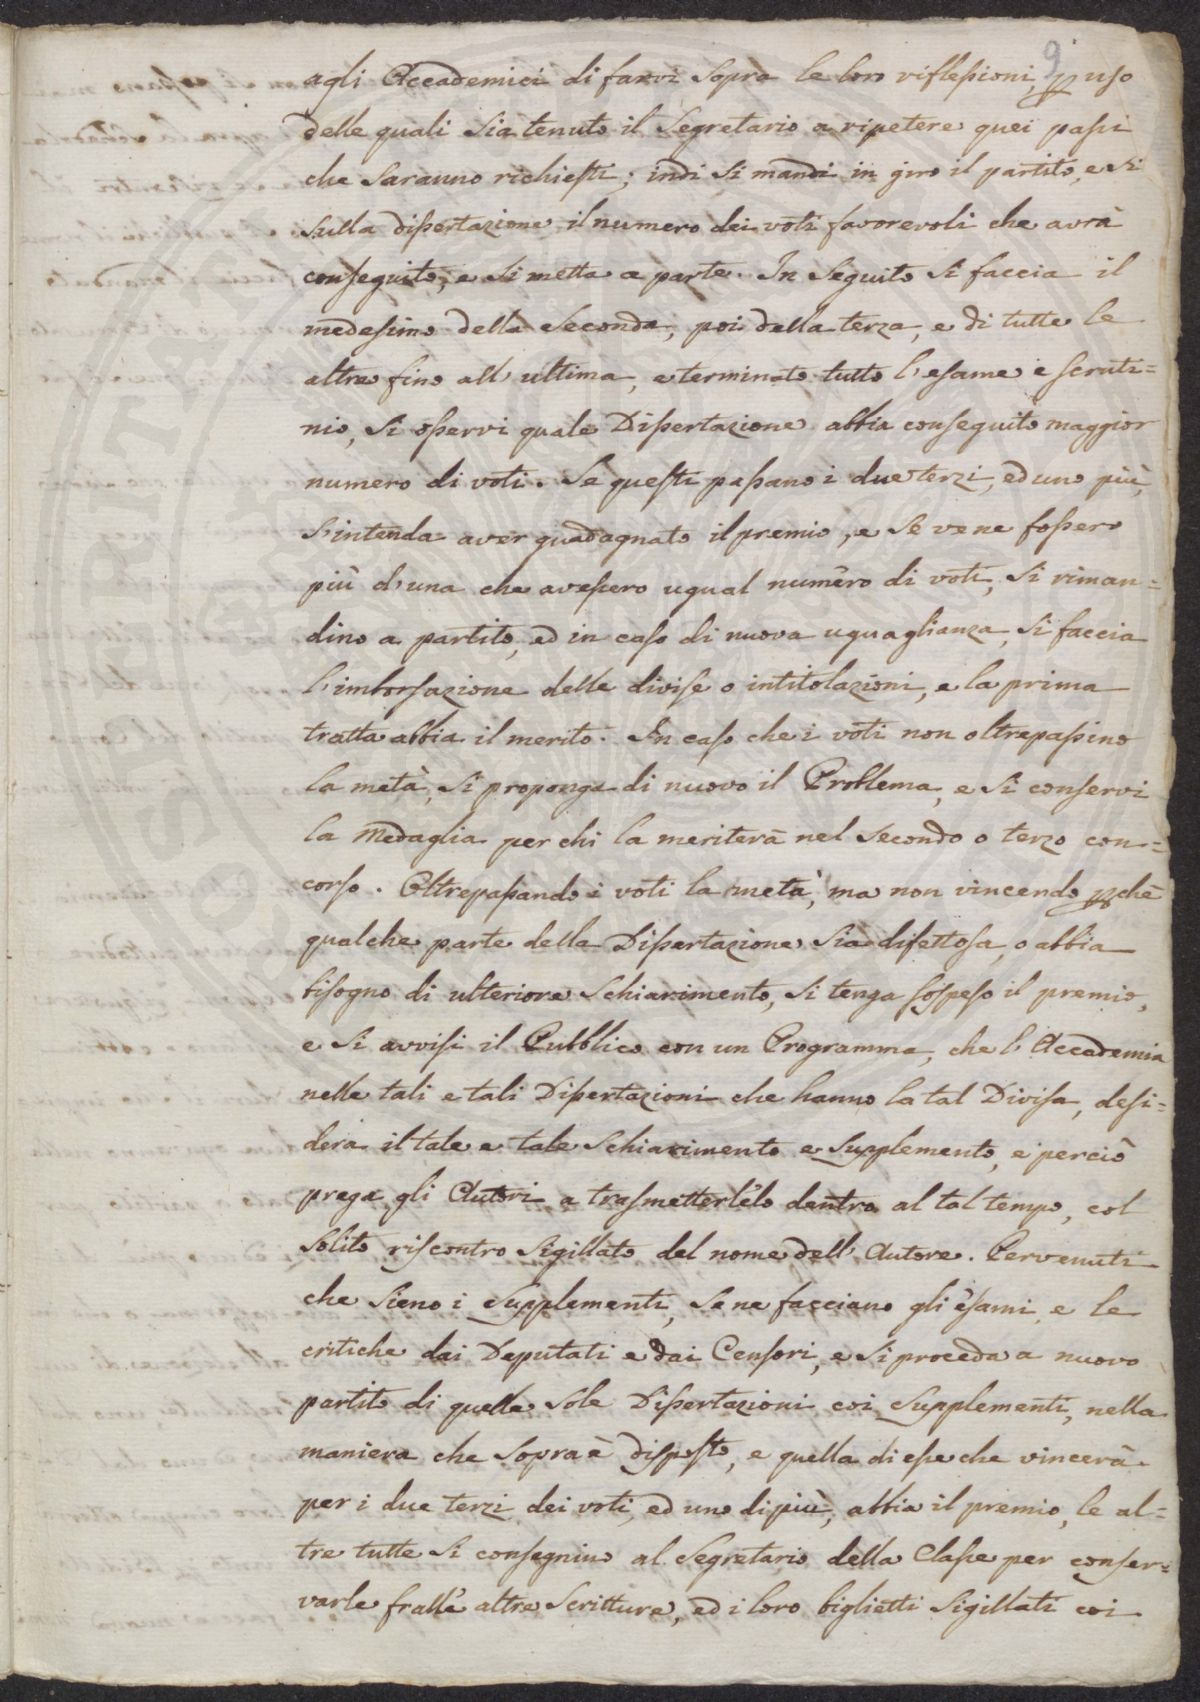 9
agli Accademici di farvi sopra le loro riflessioni, p uso
delle quali sia tenuto il Segretario a ripetere quei passi
che saranno richiesti; indi si mandi in giro il partito, e si
sulla dissertazione il numero dei voti favorevoli che avrà
conseguito, e si metta a parte. In seguito si faccia il
medesimo della seconda, poi della terza, e di tutte le
altre fino all' ultima, e terminato tutto l' esame e scruti=
nio, si osservi quale Dissertazione abbia conseguito maggior
numero di voti. Se questi passano i due terzi, ed uno più,
s'intenda aver guadagnato il premio, e se ve ne fossero
più d'una che avessero ugual numero di voti, si riman=
dino a partito, ed in caso di nuova uguaglianza, si faccia
l'imborsazione delle divise o intitolazioni, e la prima
tratta abbia il merito. In caso che i voti non oltrepassino
la metà, si proponga di nuovo il Problema, e si conservi
la Medaglia per chi la meriterà nel secondo o terzo con=
corso. Oltrepassando i voti la metà, ma non vincendo pchè
qualche parte della Dissertazione sia difettosa, o abbia
bisogno di ulteriore schiarimento, si tenga sospeso il premio,
e si avvisi il Pubblico con un Programma, che l' Accademia
nelle tali e tali Dissertazioni che hanno la tal Divisa, desi=
dera il tale e tale schiarimento e supplemento, e perciò
prega gli Autori a trasmetterlelo dentro al tal tempo, col
solito riscontro sigillato del nome dell' Autore. Pervenuti
che sieno i supplementi, se ne facciano gli esami, e le
critiche dai Deputati e dai Censori, e si proceda a nuovo
partito di quelle sole Dissertazioni coi supplementi, nella
maniera che sopra è disposto, e quella di esse che vincerà
per i due terzi dei voti, ed uno di più, abbia il premio, le al=
tre tutte si consegnino al Segretario della Classe per conser=
varle fralle altre scritture, ed i loro biglietti sigillati coi